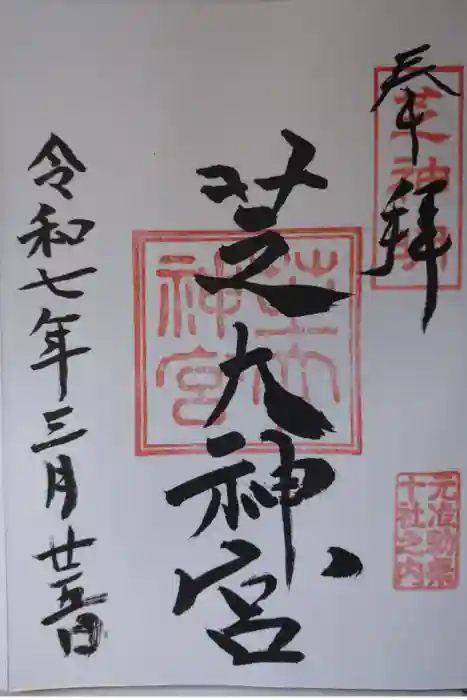 奉拝
芝神明
芝大神宮
芝大神宮
元准勅祭
十社之内
令和七年三月廿五日